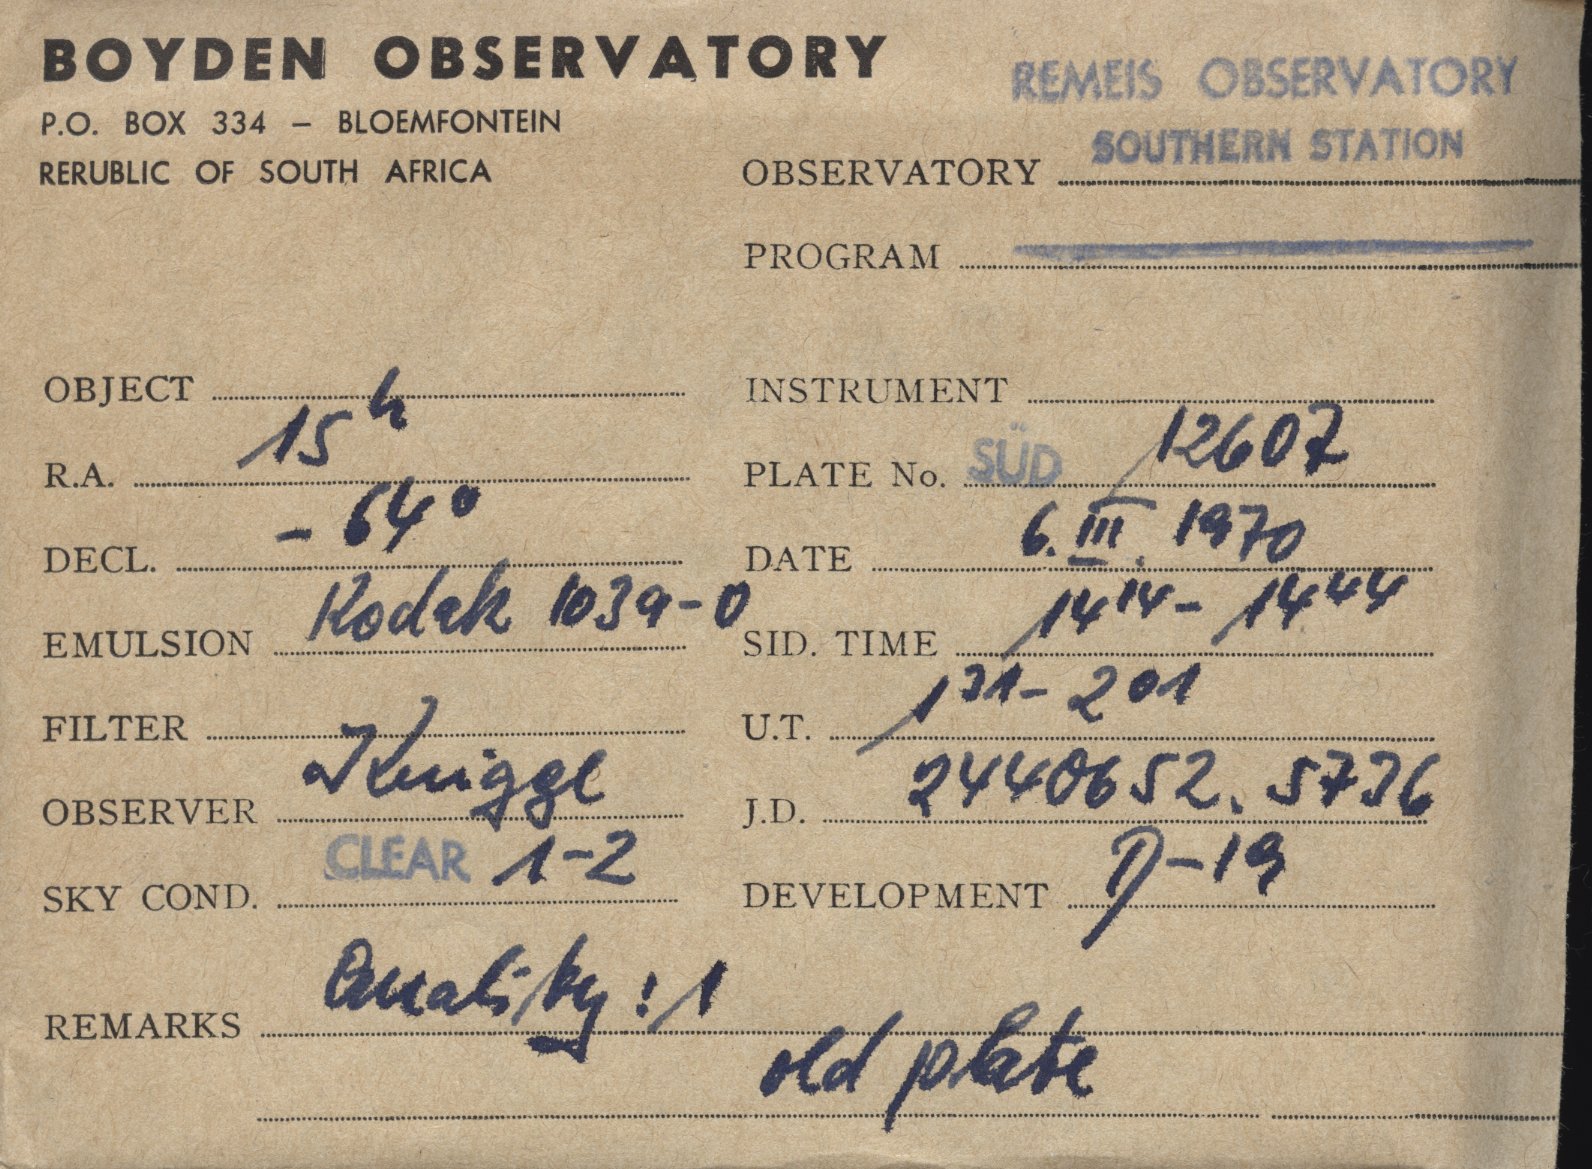 BOYDEN OBSERVATORY
P.O. BOX 334 – BLOEMFONTEIN
RERUBLIC OF SOUTH AFRICA
REMEIS OBSERVATORY
SOUTHERN STATION
OBSERVATORY
PROGRAM
OBJECT
INSTRUMENT
R.A. 15h
PLATE No. SÜD 12607
DECL. - 64°
DATE 6. III. 1970
EMULSION Kodak 103a-O
SID. TIME 14 14 - 14 44
FILTER
U.T. 1 31 - 2 01
OBSERVER Knigge
J.D. 2440652.5736
SKY COND. CLEAR 1-2
DEVELOPMENT D-19
REMARKS Quality: 1
old plate